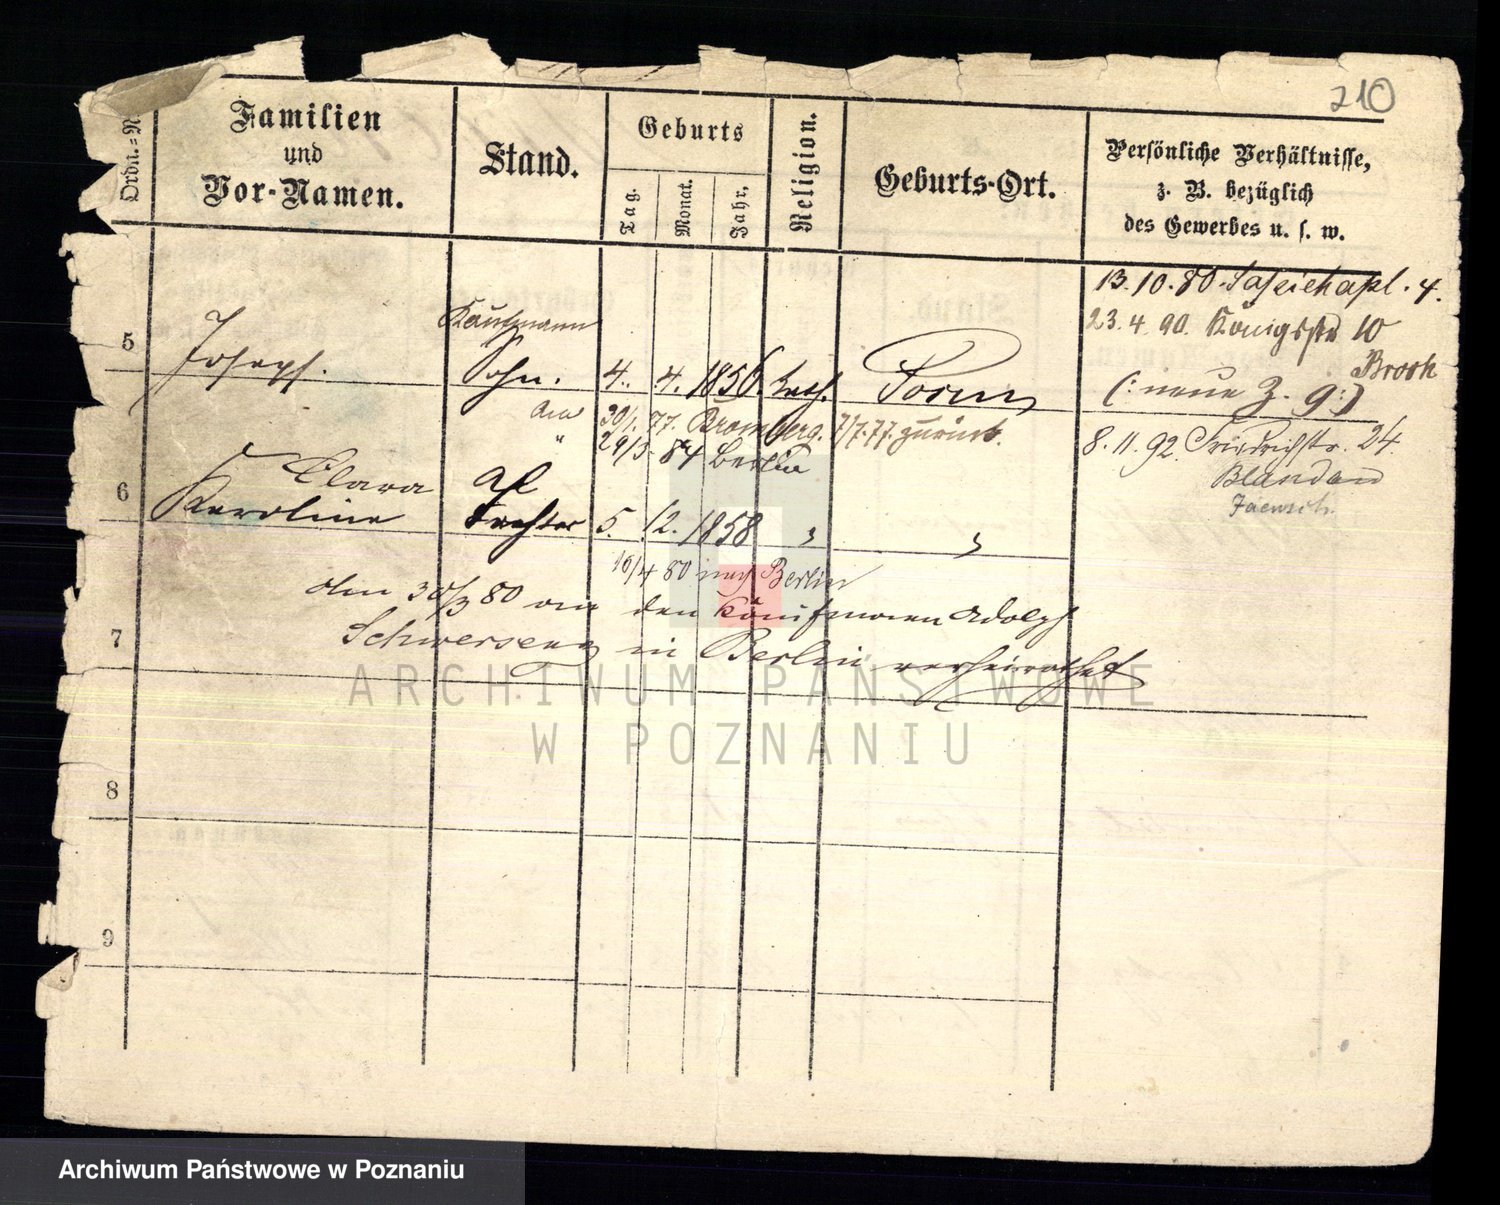 210
Ordn.=N
Familien
und
Vor-Namen.
Stand.
Geburts
Tag.
Monat.
Jahr.
Religion.
Geburts-Ort.
Persönliche Verhältnisse,
z. B. bezüglich
des Gewerbes u. s. w.
13.10.80. 4.
23.4.90. Königsstr 10
Brock
(: neue Z. g :)
8.11.92 Friedrichstr. 24.
Kaufmann
5 Joseph. Sohn. 4. 4. 1856. kath. Posen
am 30/1. 77. Bromberg. 7/7.77. zurück.
" 29/3 84 Berlin
Clara
6 Karoline Tochter 5. 12. 1858 " "
16/4 80 nach Berlin
den 30/3 80 an den Kaufmann Adolph
7 Schwersenz in Berlin verheirathet
8
9
ARCHIWUM PAŃSTWOWE
W POZNANIU
Archiwum Państwowe w Poznaniu